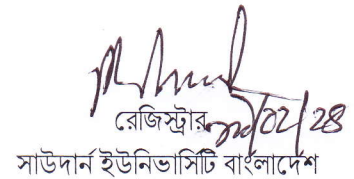 রেজিস্ট্রার
সাউদার্ন ইউনিভার্সিটি বাংলাদেশ